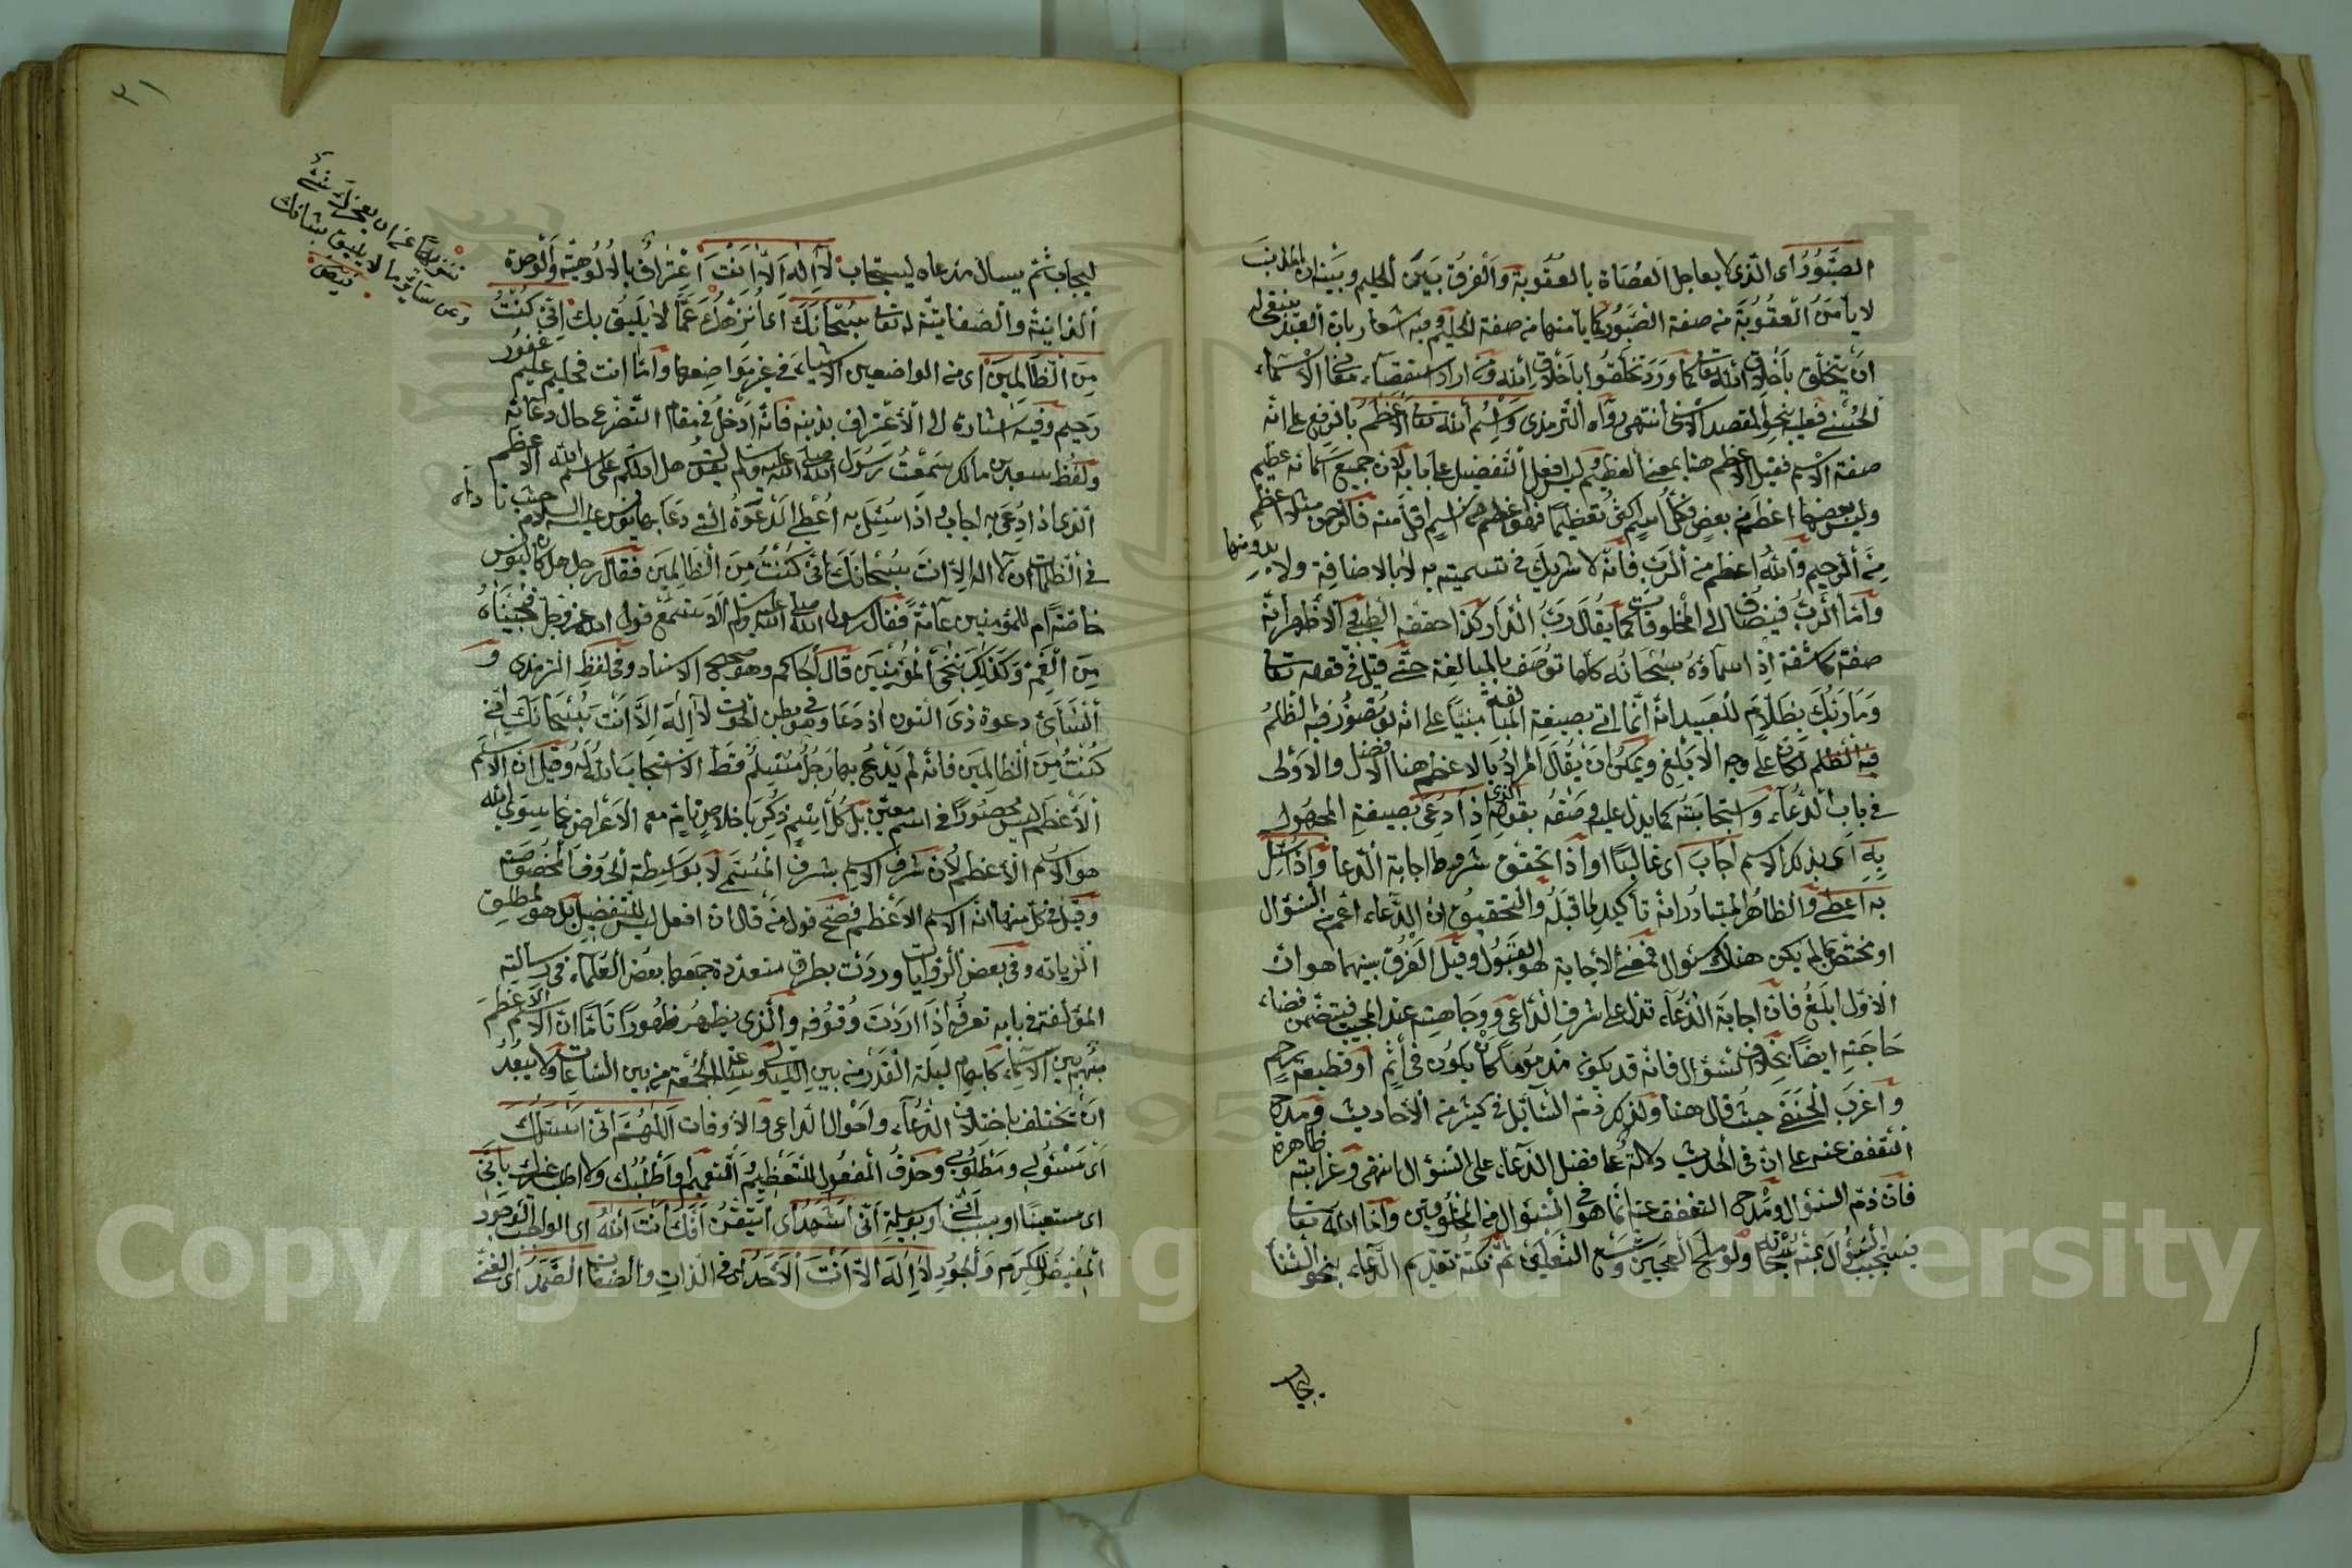 الصَّبُورُ اى الّذى لا يعاجل العُصَاة بالعقُوبة وَالفرق بَين الحليم وبينه ان المذنب
لا يأمَنُ العقُوبَة من صفة الصَّبُور كما يأمنها من صفة الحليم وفيه اشعار بان العبد ينبغى له
ان يتخلّق باخلاق الله تعالى كما وَرَد تخلّقوا باخلاق الله ومن اراد استقصاء معانى الاسماء
الحُسنى فعليه بنحو المقصد الاسنى انتهى روَاه الترمذى وَاسم الله تعالى الاعظم بالرفع على انّه
صفة الاسم فقيل الاعظم هنا بمعنى العظيم وليس افعل التفضيل على بابه لان جميع اسمائه عظيم
وليس بعضها اعظم من بعض وقيل كلّ اسم اكثر تعظيمًا فهو اعظم من اسم اقل منه فالرحمن مثلا اعظم
من الرحيم والله اعظم من الربّ فانّه لا شريك فى تسميته به لا بالاضافة ولا بدونها
وَامّا الربُّ فيُضاف الى المخلوقات كما يقال ربّ الدار كذا حققه الطيبى والاظهر انّه
صفة كاشفة اذ اسماؤه سبحانه كلها توصف بالمبالغة حتى قيل فى قوله تعالى
وَمَا رَبُّكَ بِظَلّامٍ للعَبيد انّه انما اتى بصيغة المبالغة مبنيًا على انه لو تصُوّر فيه الظلمُ
فيه الظلم لكان على وجه الابلغ ويمكن ان يقال المراد بالاعظم هنا الافضل والاولى
فى باب الدُّعاء واستجابته كما يدل عليه وصفه بقوله الذى اِذا دُعِىَ بصيغة المجهول
بِهِ اى بذلك الاسم اجَابَ اى غالبًا او اذا تحقق شروط اجابة الدّعا وَاذا سُئِل
به اعطى والظاهر المتبادر انه تأكيد لما قبله والتحقيق ان الدّعاء اعم من السؤال
او مختص بما لم يكن هناك سُوال فمعنى الاجابة هو القبُول وقيل الفرق بينهما هو ان
الاوّل ابلغ فان اجابة الدُّعاء تدل على شرف الدّاعى ووجاهته عند المجيب فيتضمن قضاء
حَاجته ايضًا بخلاف السّؤال فانه قد يكون مذمومًا كان يكون فى اثم او قطيعة رحم
واغرب الحنفى حيث قال هنا ولذا ذُكر ذمّ السّائل فى كثير من الاحاديث ومدح
المتعفف عنه على ان فى الحديث دلالة على فضل الدّعاء على السُؤال انتهى وغرابته ظاهرة
فان ذمّ السُؤال ومدح التعفف عنه انما هو فى السّؤال من المخلوقين وامّا الله تعالى
فيستحب السُؤال منه سُبحانه ولو ملح العجين وشسع النعلين ثم نكتة تقديم الدّعاء بنحو الثنا
ليجاب ثم يسال مدعاه ليستجاب لا اِلٰه اِلّا انتَ اعتراف بالالُوهيّة والوحدة
الذاتية والصّفاتيّة له تعالى سُبْحانكَ اى اُنزهك عمّا لا يليق بك اِنّى كُنْتُ
مِنَ الظّالِمينَ اى من الواضعين الاشياء فى غير مواضِعها وامّا انت فحليم عليم غفُور
رحيم وفيه اشارة الى الاعتراف بذنبه فانّه اَدخل فى مقام التضرّع حال دعائه
ولفظ سعد بن مالك سَمعتُ رسُول الله صلى الله عليه وسلم يقول هل ادلكم على اسم الله الاعظم
الّذى اذا دُعى به اجاب واذا سُئِل به اعطى الدعوةُ التى دعَا بها يونس عليه السّلام حيث ناداه
فى الظلمات ان لا اله الا انت سُبحانك انّى كنتُ من الظالمين فقال رجل هل كانت ليونس
خاصّة ام للمؤمنين عامّة فقال رسول الله صلى الله عليه وسلم الا تسمع قول الله عز وجل فنجيناه
من الغم وكذلك ننجى المؤمنين قال الحاكم وهو صحيح الاسناد وفى لفظ الترمذى و
النسائى دعوة ذى النون اذ دعا وهو فى بطن الحوت لا اِلٰه اِلّا انت سُبحانك انّى
كنتُ من الظالمين فانّه لم يَدْعُ بها رجلٌ مُسلمٌ قط الا استجاب الله له وقيل ان الاسم
الاعظم ليس محصُورًا فى اسم معيّن بل كلّ اسم ذكر باخلاص تام مع الاعراض عما سوى الله
هو الاسم الاعظم لان شرف الاسم بشرف المُسمّى لا بواسطة الحروف المخصُوصة
وقيل فى كلّ منها انه الاسم الاعظم فصحّ قول من قال ان افعل ليس للتفضيل بل هو لمطلق
الزيادة وفى بعض الروايات وردت بطرق متعددة جمعها بعض العلماء فى رسالته
المؤلفة فى بابه تعرفه اذا اردت وقوفه والّذى يظهر ظهُورًا تامًا انّ الاسم الاعظم
مبهم بين الاسماء كابهام ليلة القدر من بين الليالى وساعة الجمعة من بين الساعات ولا يبعُد
ان تختلف باختلاف الدُّعاء واحوال الداعى والاوقات اَللّٰهُمّ انّى اسئلك
اى مسئولى ومطلوبى وحذف المفعول للتعظيم والتعميم او اطلبك ولا اطلب غيرك بِاَنّى
اى مستعينًا او بسبب انّى او بوسيلة انّى اشهدُ اى اتيقن اَنّكَ اَنتَ اللهُ اى الواجب الوجود
المفيض للكرم والجُود لا اِلٰهَ اِلّا اَنْتَ الاَحَدُ اى فى الذات والصّفات الصَّمَدُ اى الغنى
تنزيهًا عن ان يعجزك شئ
وعن سائر ما لا يليق بشانك
فيض
٣١